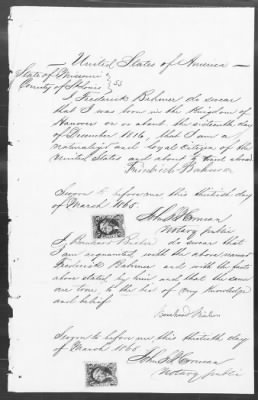 — United States of America —
State of Missouri
County of St Louis } SS
I Frederick Bahmer do swear
that I was born in the Kingdom of
Hanover on or about the sixteenth day
of December 1816, that I am a
naturalized and loyal citizen of the
United States and about to travel abroad
Friedrich
Sworn to before me this thirtieth day
of March 1865.
Notary public
I do swear that
I am acquainted with the above named
Frederick Bahmer and with the facts
above stated by him and that the same
are true to the best of my knowledge
and belief
Sworn to before me this thirtieth day
of March 1865
Notary public